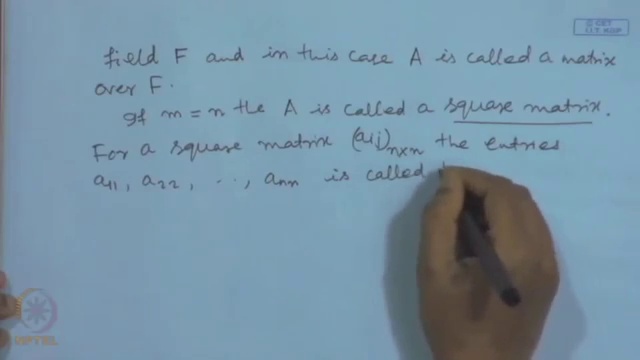 © CET
I.I.T. KGP
field F and in this case A is called a matrix
over F.
If m = n the A is called a square matrix.
For a square matrix (aij)n×n the entries
a11, a22, . . ., ann is called
NPTEL